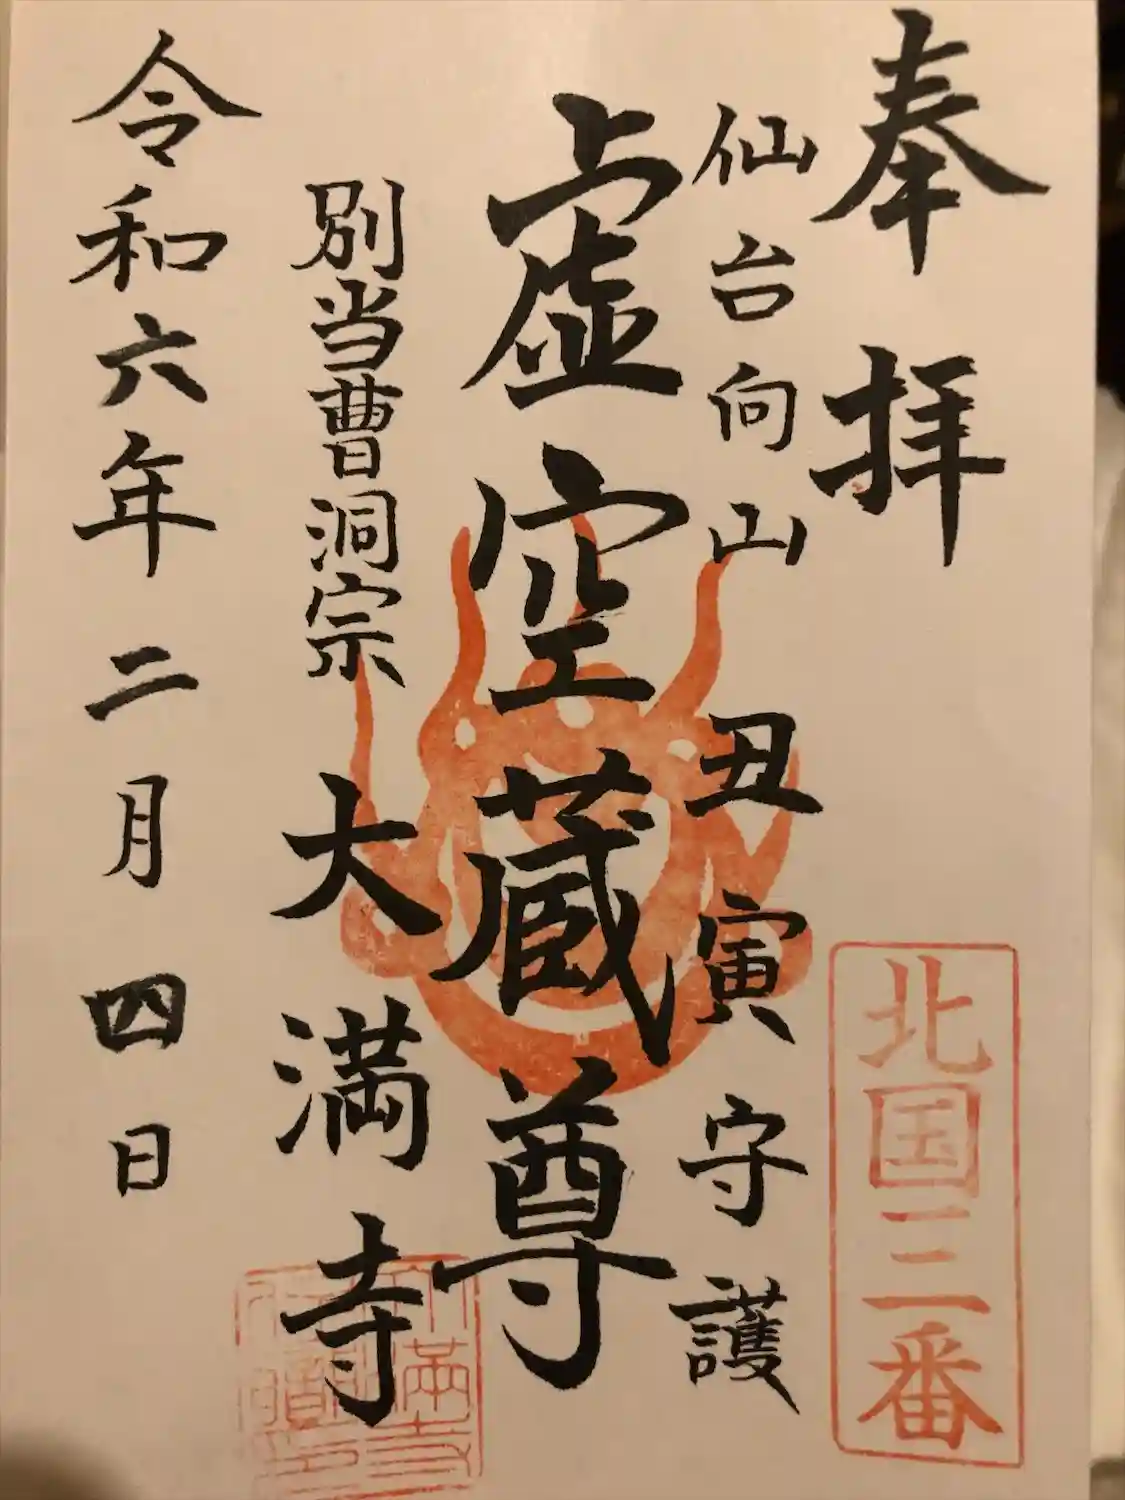 奉拝
北国三番
仙台向山 丑寅守護
虚空蔵尊
別当曹洞宗 大満寺
令和六年二月四日